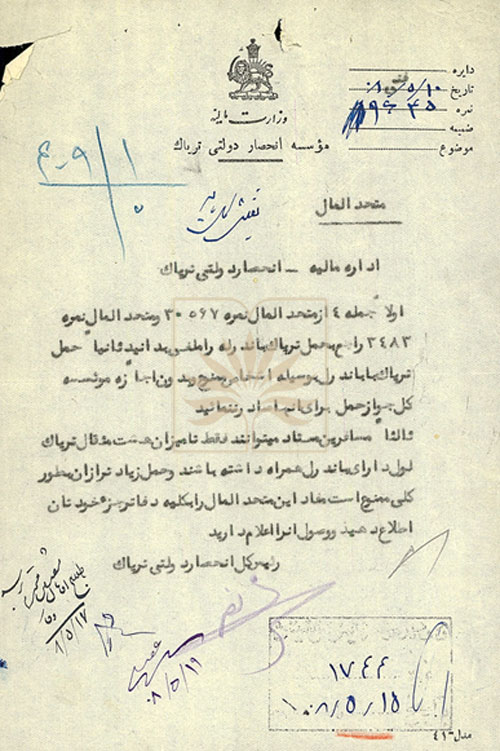 وزارت مالیه
مؤسسه انحصار دولتی تریاك
دایره
تاریخ ۱۰/۵/۰۸
نمره ۱۹۶۴۵
ضمیمه
موضوع
۴۰۹/۱
۵
متحد المال
اداره مالیه – انحصار دولتی تریاك
اولا جمله ٤ از متحد المال نمره ۳۰۵٦۷ ومتحد المال نمره
۳٤۸۳ راجع بحمل تریاك باندرله را ملغی بدانید ثانیا حمل
تریاك باندرل بوسیله اشخاص ممنوع وبدون اجازه موئسسه
كل جواز حمل برای آنها صادر ننمائید
ثالثا مسافرین معتاد میتوانند فقط تا میزان هشت مثقال تریاك
لول دارای باندرل همراه داشته باشند وحمل زیادتر از آن بطور
كلی ممنوع است مفاد این متحد المال را بكلیه دفاتر جزء خودتان
اطلاع دهید ووصول آنرا اعلام دارید
رئیس كل انحصار دولتی تریاك
۸/۵/۱۷
۰۸/۵/۱۹
۱۷۴۴
۱۵/۵/۱۰۸
مدل ٤۱